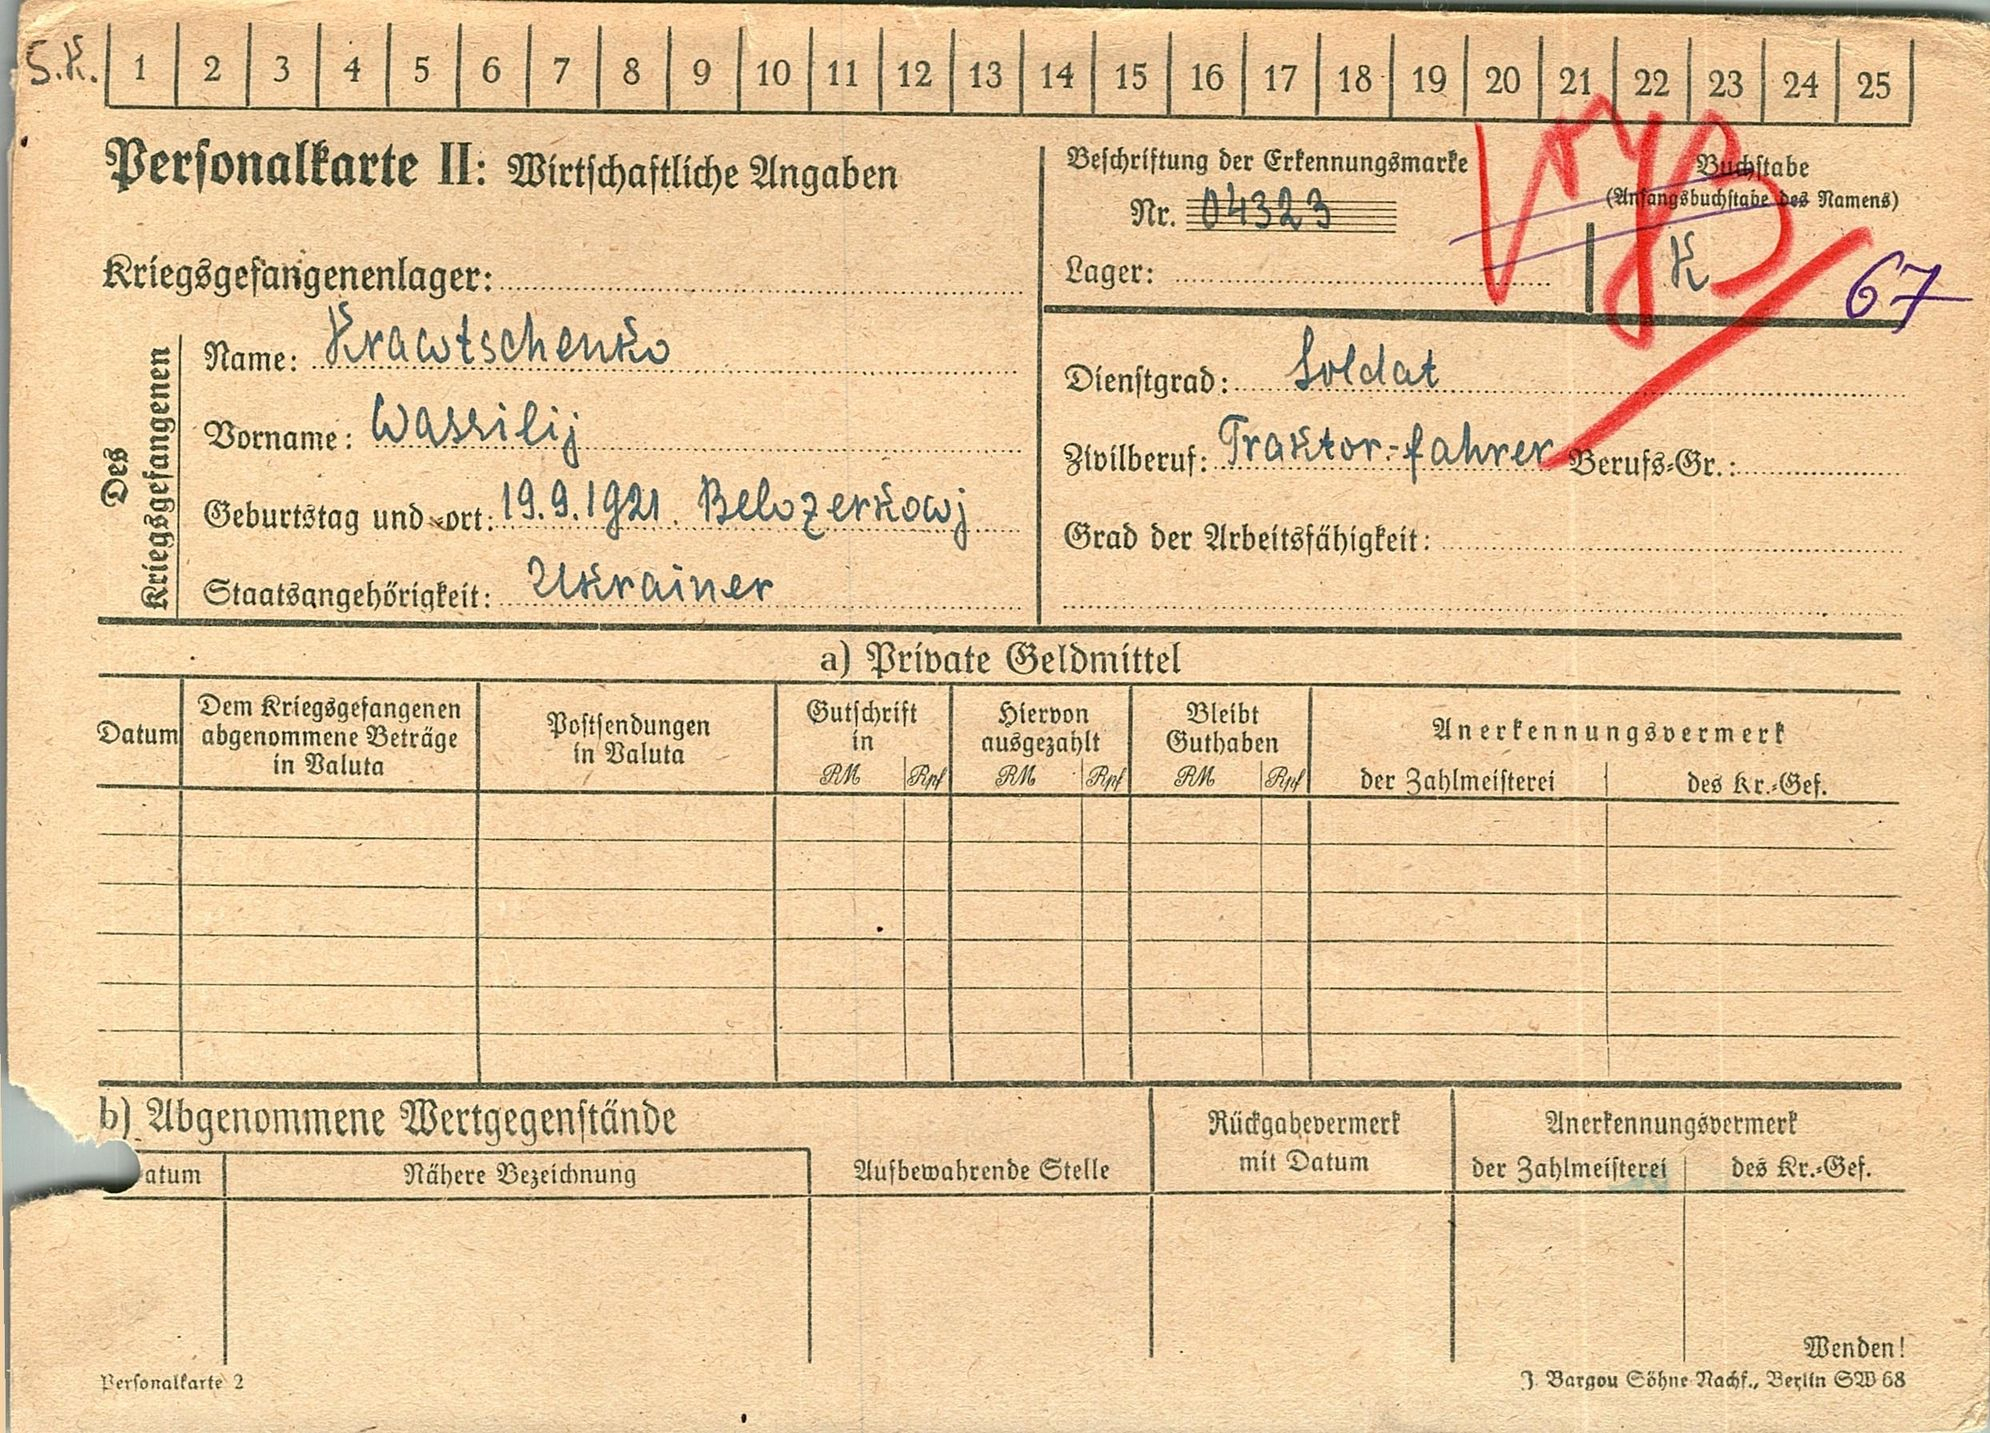 S.K. 1 2 3 4 5 6 7 8 9 10 11 12 13 14 15 16 17 18 19 20 21 22 23 24 25
Personalkarte II: Wirtschaftliche Angaben
Beschriftung der Erkennungsmarke
Nr. 04323
Lager:
Buchstabe
(Anfangsbuchstabe des Namens)
K
67
Kriegsgefangenenlager:
Des Kriegsgefangenen
Name: Krawtschenko
Vorname: Wassilij
Geburtstag und -ort: 19.9.1921. Belozerkowj
Staatsangehörigkeit: Ukrainer
Dienstgrad: Soldat
Zivilberuf: Traktor-fahrer Berufs-Gr.:
Grad der Arbeitsfähigkeit:
a) Private Geldmittel
Datum
Dem Kriegsgefangenen
abgenommene Beträge
in Valuta
Postsendungen
in Valuta
Gutschrift
in
RM Rpf
Hiervon
ausgezahlt
RM Rpf
Bleibt
Guthaben
RM Rpf
Anerkennungsvermerk
der Zahlmeisterei
des Kr.-Gef.
b) Abgenommene Wertgegenstände
atum
Nähere Bezeichnung
Aufbewahrende Stelle
Rückgabevermerk
mit Datum
Anerkennungsvermerk
der Zahlmeisterei
des Kr.-Gef.
Wenden!
Personalkarte 2
J. Bargou Söhne Nachf., Berlin SW 68